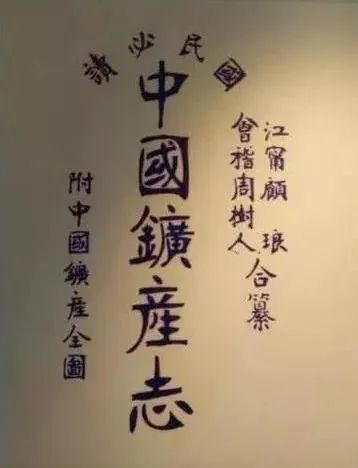 國民必讀
江甯顧琅
會稽周樹人
合纂
中國鑛產志
附中國鑛產全圖